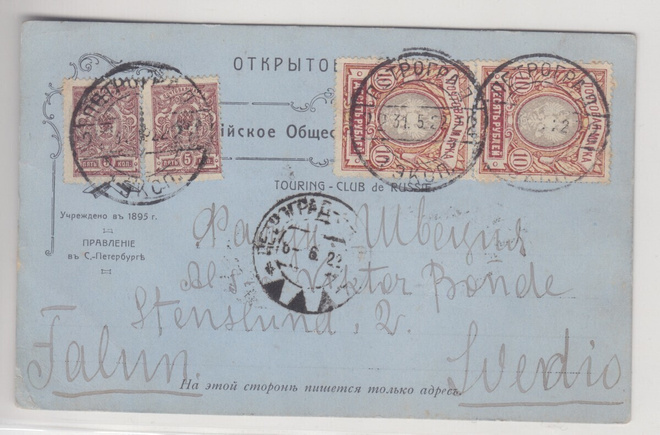 ОТКРЫТОЕ
ійское Общес
TOURING - CLUB de RUSSIE
Учреждено въ 1895 г.
ПРАВЛЕНІЕ
въ С.-Петербургѣ
ПЯТЬ КОП.
5
10
10
31.5.22
ПЕТРОГРАД
Фалун Швеция
Viktor Bonde
Stenslund, 2.
Falun.
Svedio
На этой сторонѣ пишется только адресъ.